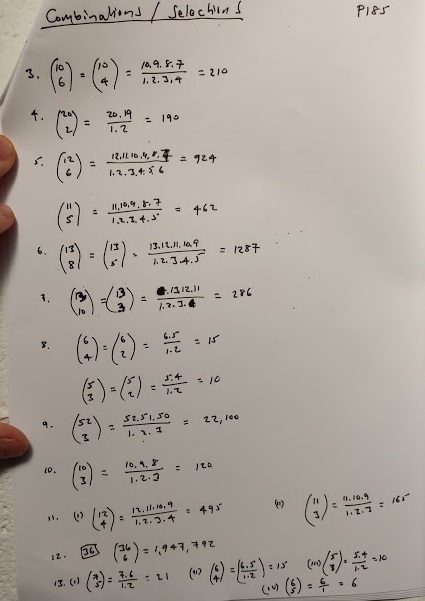 Combinations / Selections P185
3. (10 6) = (10 4) = 10.9.8.7 / 1.2.3.4 = 210
4. (20 2) = 20.19 / 1.2 = 190
5. (12 6) = 12.11.10.9.8.7 / 1.2.3.4.5 6 = 924
(11 5) = 11.10.9.8.7 / 1.2.3.4.5 = 462
6. (13 8) = (13 5) = 13.12.11.10.9 / 1.2.3.4.5 = 1287
7. (13 10) = (13 3) = 13.12.11 / 1.2.3 = 286
8. (6 4) = (6 2) = 6.5 / 1.2 = 15
(5 3) = (5 2) = 5.4 / 1.2 = 10
9. (52 3) = 52.51.50 / 1.2.3 = 22,100
10. (10 3) = 10.9.8 / 1.2.3 = 120
11. (i) (12 4) = 12.11.10.9 / 1.2.3.4 = 495 (ii) (11 3) = 11.10.9 / 1.2.3 = 165
12. 36 (36 6) = 1,947,792
13. (i) (7 5) = 7.6 / 1.2 = 21 (ii) (6 4) = (6.5 / 1.2) = 15 (iii) (5 3) = 5.4 / 1.2 = 10
(iv) (6 5) = 6 / 1 = 6